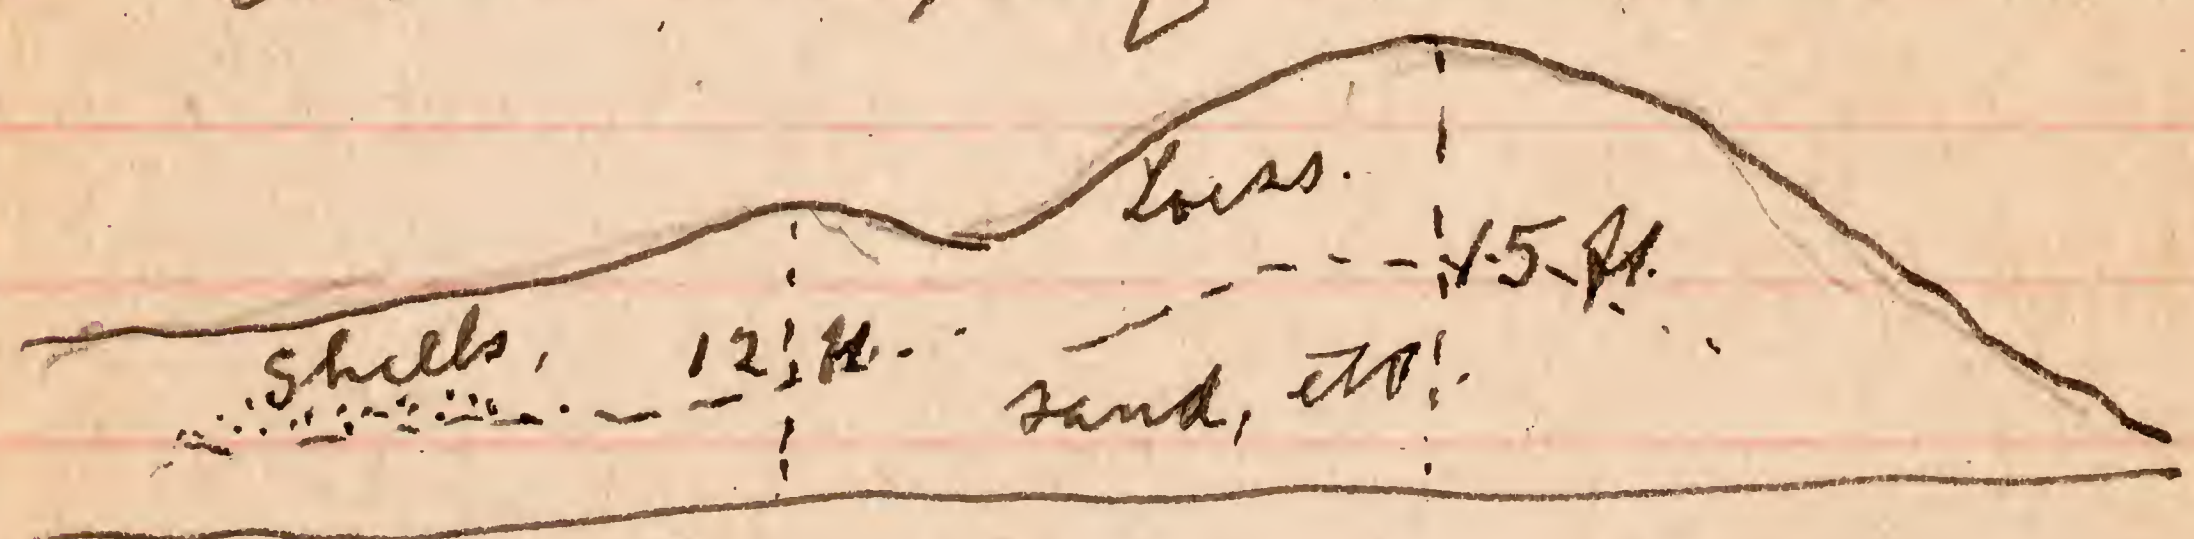 Loess.
15 ft.
Shells, 12 ft.
sand, etc.